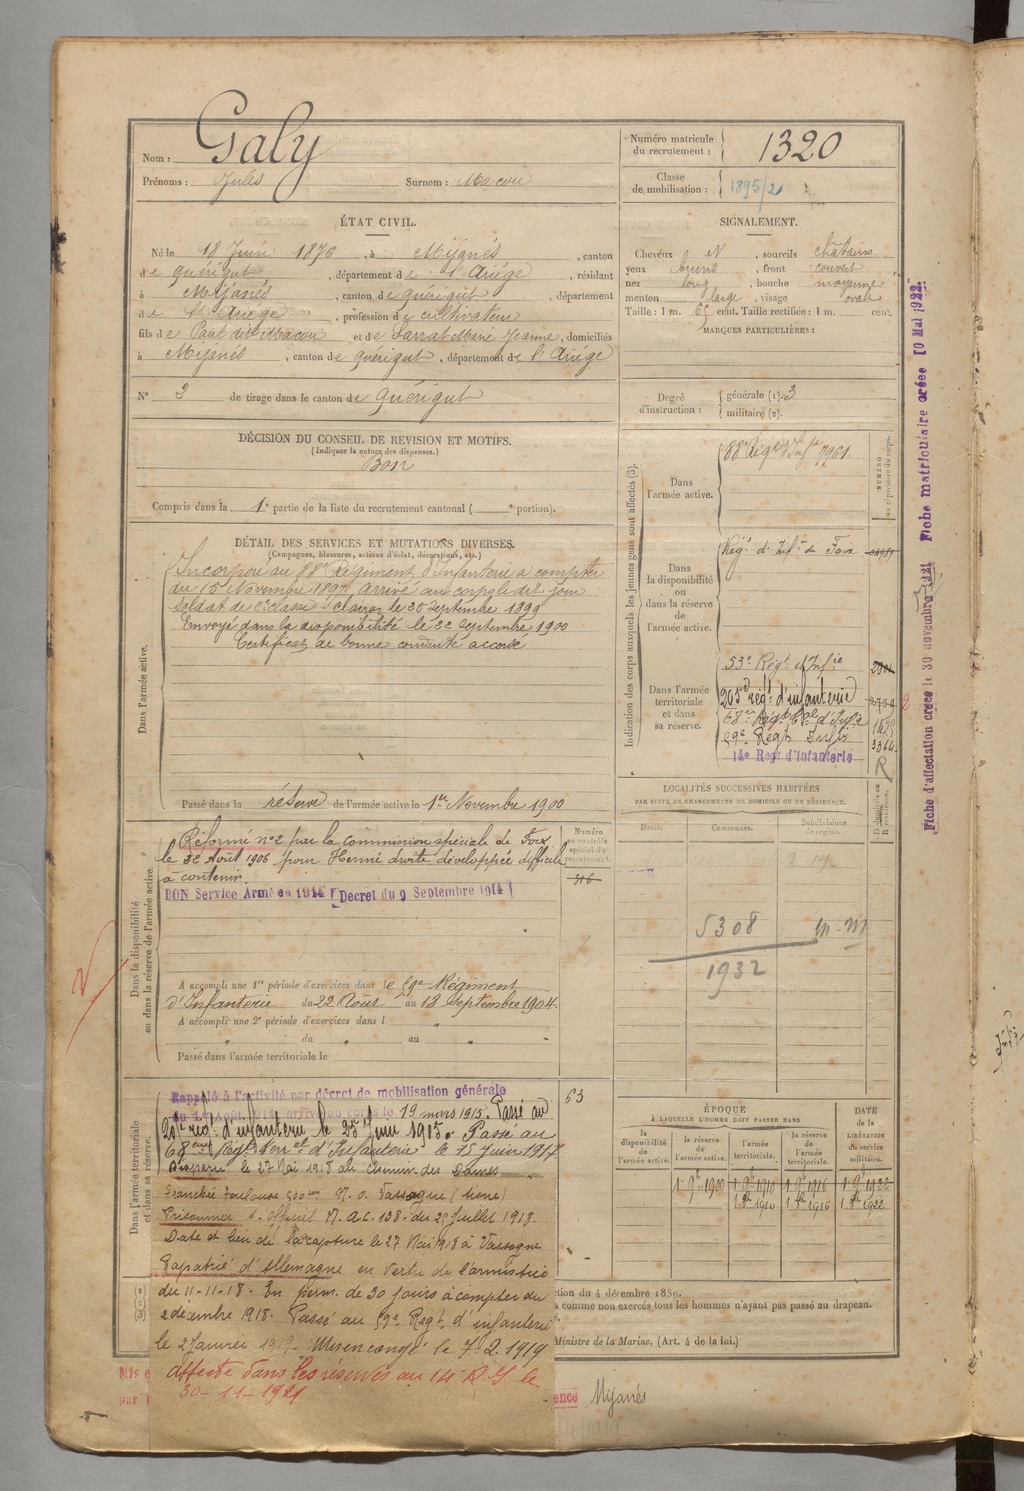 Nom : Galy
Prénoms : Jules Surnom : Macou
Numéro matricule du recrutement : 1320
Classe de mobilisation : 1895/2
ÉTAT CIVIL.
Né le 18 Juin 1876, à Mijanès, canton
de Quérigut, département de l'Ariège, résidant
à Mijanès, canton de Quérigut, département
de l'Ariège, profession de cultivateur
fils de Paul dit Macou et de Sarrat Marie Jeanne, domiciliés
à Mijanès, canton de Quérigut, département de l'Ariège
N° 3 de tirage dans le canton de Quérigut
SIGNALEMENT.
Cheveux N, sourcils châtains
yeux bruns, front couvert
nez long, bouche moyenne
menton large, visage ovale
Taille : 1 m. 65 cent. Taille rectifiée : 1 m. cent.
MARQUES PARTICULIÈRES :
Degré d'instruction : générale (1). 3
militaire (2).
DÉCISION DU CONSEIL DE REVISION ET MOTIFS.
(Indiquer la nature des dispenses.)
Bon
Compris dans la 1e partie de la liste du recrutement cantonal ( e portion).
DÉTAIL DES SERVICES ET MUTATIONS DIVERSES.
(Campagnes, blessures, actions d'éclat, décorations, etc.)
Dans l'armée active.
Incorporé au 88e régiment d'Infanterie à compter
du 15 Novembre 1897 arrivé au corps le dit jour
Soldat de 2e classe. Clairon le 25 septembre 1899
Envoyé dans la disponibilité le 22 septembre 1900
Certificat de bonne conduite accordé
Passé dans la réserve de l'armée active le 1er Novembre 1900
Indication des corps auxquels les jeunes gens sont affectés (3).
NUMÉRO au répertoire du corps.
Dans l'armée active.
88e Rég. d'Inf.ie 7961
Dans la disponibilité ou dans la réserve de l'armée active.
Régt d'Inf.ie de Foix
Dans l'armée territoriale et dans sa réserve.
53e Régt d'Inf.ie
205e régt d'infanterie
68e Régt d'Inf.ie
59e Régt Inf.ie 3364
14e Régt d'Infanterie R
LOCALITÉS SUCCESSIVES HABITÉES
PAR SUITE DE CHANGEMENTS DE DOMICILE OU DE RÉSIDENCE.
Dates. Communes. Subdivisions de région. D domicile ou R résidence.
5308 m-m
1932
Dans la disponibilité ou dans la réserve de l'armée active.
Numéro au contrôle spécial du recrutement.
516
Réformé n°2 par la commission spéciale de Foix
le 22 Août 1906 pour Hernie droite développée difficile
à contenir.
BON Service Armé en 1914 (Décret du 9 Septembre 1914)
A accompli une 1re période d'exercices dans le 59e Régiment
d'Infanterie du 22 Août au 18 Septembre 1904.
A accompli une 2e période d'exercices dans l "
" du " au "
Passé dans l'armée territoriale le
Dans l'armée territoriale et dans sa réserve.
63
Rappelé à l'activité par décret de mobilisation générale
du 1er Août 1914 arrivé au corps le 19 mars 1915. Passé au
205e rég. d'infanterie le 25 Juin 1915. Passé au
68e Régt Terr.al d'Infanterie le 15 juin 1917
Disparu le 27 Mai 1918 au Chemin des Dames
Prisonnier A. officiel N. A.C. 138 du 25 Juillet 1918.
Date et lieu de la capture le 27 Mai 1918 à Vassogne
Rapatrié d'Allemagne en vertu de l'armistice
du 11-11-18. En perm. de 30 jours à compter du
2 décembre 1918. Passé au 59e Régt. d'infanterie
le 2 Janvier 1919. Mis en congé le 7.2.1919
affecté dans les réserves au 14 R.I. le
30-11-1921
ÉPOQUE
À LAQUELLE L'HOMME DOIT PASSER DANS
la disponibilité de l'armée active. la réserve de l'armée active. l'armée territoriale. la réserve de l'armée territoriale.
DATE de la LIBÉRATION du service militaire.
1 9bre 1900 1 9bre 1910 1 9bre 1916 1 9bre 1922
1 8bre 1910 1 8bre 1916 1 8bre 1922
ction du 4 décembre 1889.
a comme non exercés tous les hommes n'ayant pas passé au drapeau.
Ministre de la Marine. (Art. 4 de la loi.)
Mis e
par
ence Mijanès
Fiche d'affectation créée le 30 novembre 1921
Fiche matriculaire créée 10 Mai 1922.